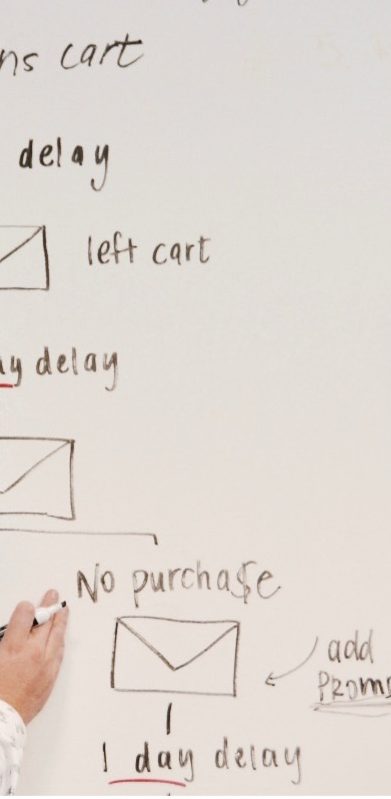 ns cart
delay
left cart
ay delay
No purcha$e
add
PROMS
1 day delay